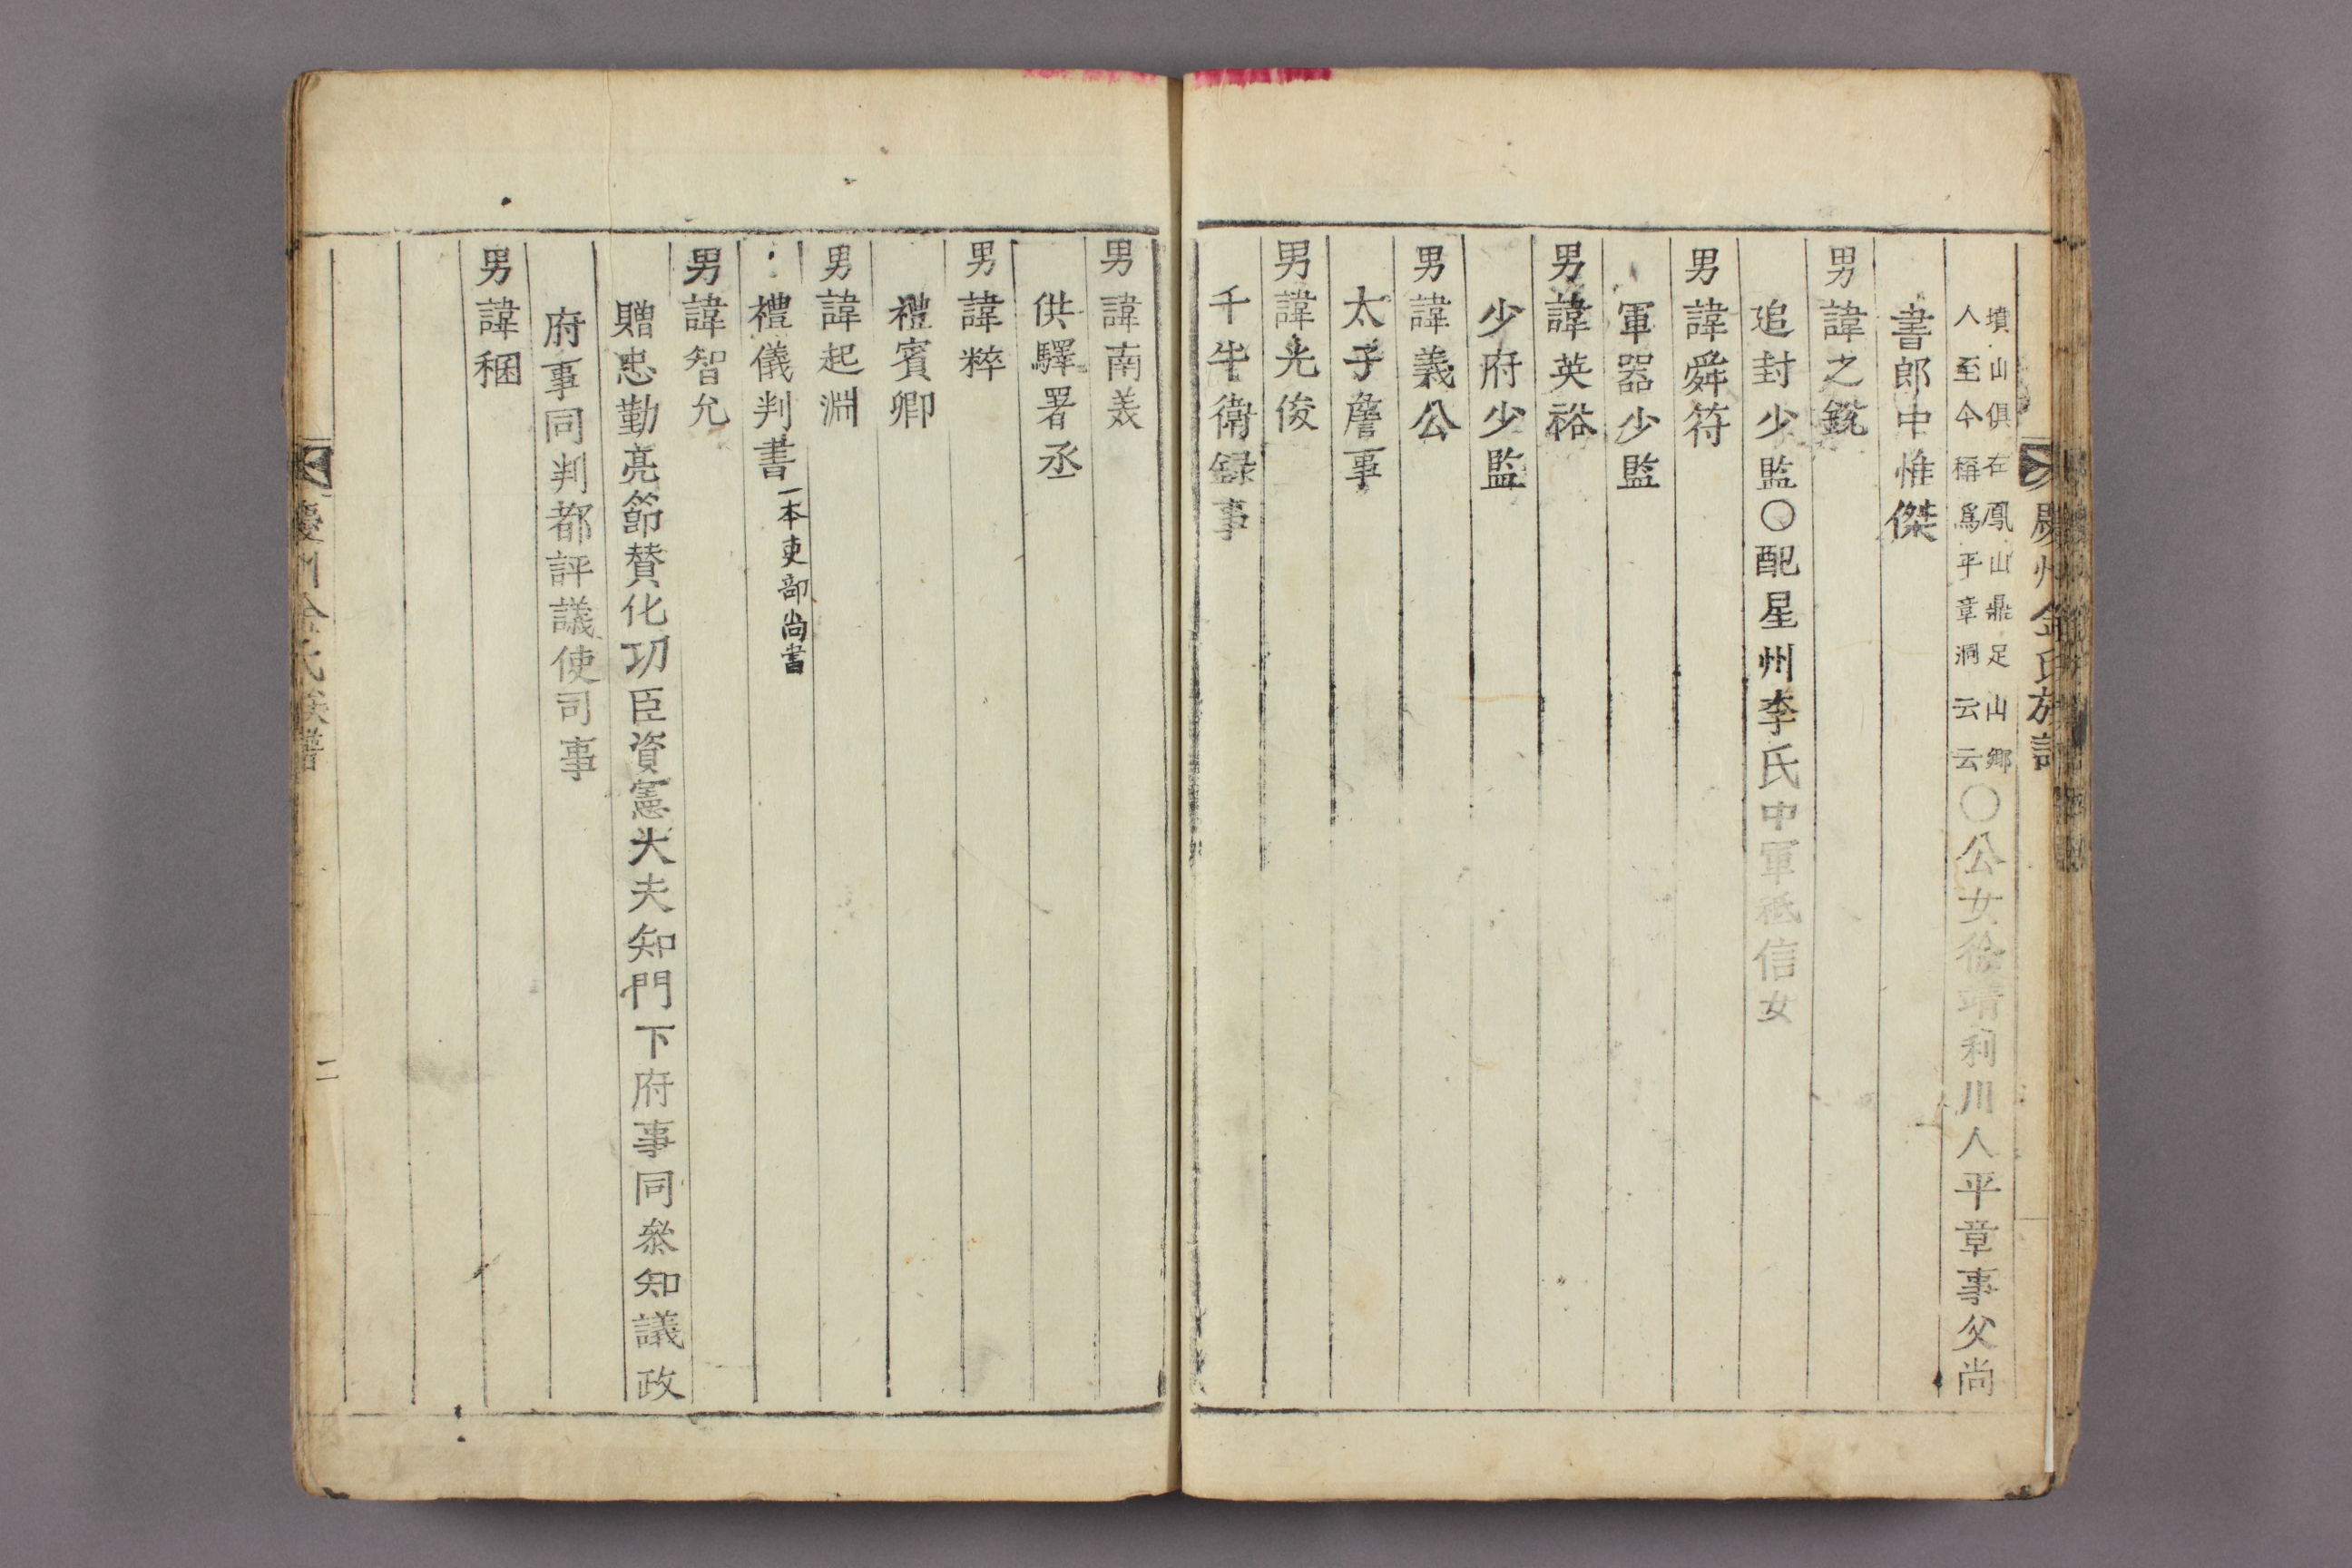 慶州金氏族譜
墳山俱在鳳山鼎足山鄉
人至今稱爲平章洞云云
○公女徐靖利川人平章事父尚
書郎中惟傑
男諱之銳
追封少監○配星州李氏中軍祗信女
男諱舜符
軍器少監
男諱英裕
少府少監
男諱義公
太子詹事
男諱光俊
千牛衛録事
男諱南羙
供驛署丞
男諱粹
禮賓卿
男諱起淵
禮儀判書一本吏部尚書
男諱智允
贈忠勤亮節賛化功臣資憲大夫知門下府事同叅知議政
府事同判都評議使司事
男諱稇
慶州金氏族譜
二